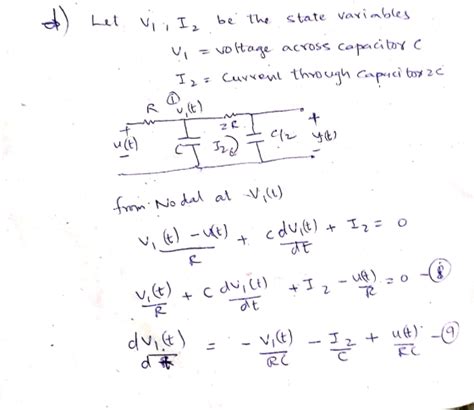 d) Let V₁, I₂ be the state variables
V₁ = voltage across capacitor C
I₂ = current through capacitor 2C
R ① V₁(t) 2R +
+ u(t) - C I₂ C/2 y(t)
-
from Nodal at V₁(t)
(V₁(t) - u(t))/R + C dV₁(t)/dt + I₂ = 0
V₁(t)/R + C dV₁(t)/dt + I₂ - u(t)/R = 0 -⑧
dV₁(t)/dt = - V₁(t)/RC - I₂/C + u(t)/RC -⑨